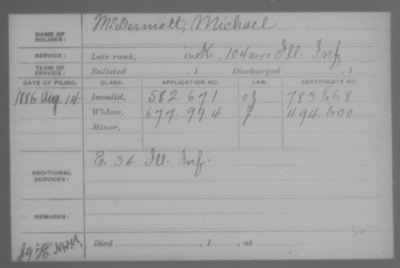 NAME OF SOLDIER: McDermott, Michael
SERVICE: Late rank, Co. K, 104 Ill. Inf.
TERM OF SERVICE: Enlisted , 1 Discharged , 1
DATE OF FILING. CLASS. APPLICATION NO. LAW. CERTIFICATE NO.
1886 Aug. 14 Invalid, 582 671 783 668
Widow, 677 994 494 600
Minor,
ADDITIONAL SERVICES: E. 36 Ill. Inf.
REMARKS:
Died , 1 , at